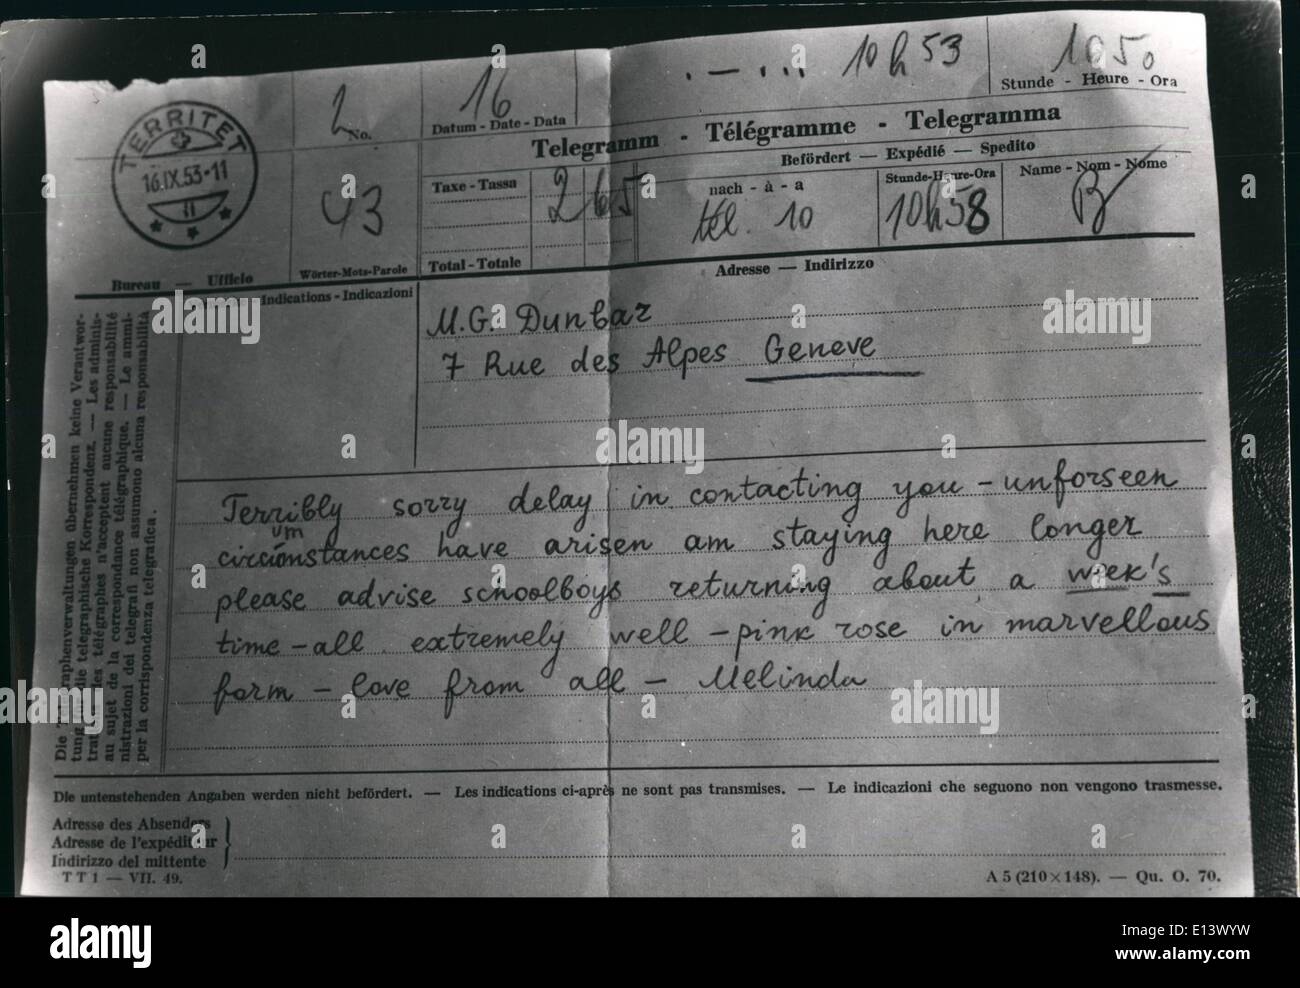 10h53 1050
Stunde - Heure - Ora
2 No. 16
Datum - Date - Data
TERRITET
16.IX.53-11
Telegramm - Télégramme - Telegramma
Befördert — Expédié — Spedito
43
Taxe - Tassa 265
nach - à - a
Stunde-Heure-Ora
Name - Nom - Nome
tél. 10 10h58 B
Total - Totale
Bureau — Ufficio
Wörter-Mots-Parole
Adresse — Indirizzo
Indications - Indicazioni
M.G. Dunbar
7 Rue des Alpes Geneve
Terribly sorry delay in contacting you - unforseen
um
circonstances have arisen am staying here longer
please advise schoolboys returning about a week's
time - all extremely well - pink rose in marvellous
form - love from all - Melinda
Die Telegraphenverwaltungen übernehmen keine Verantwor-
tung für die telegraphische Korrespondenz. — Les adminis-
trations des télégraphes n'acceptent aucune responsabilité
au sujet de la correspondance télégraphique. — Le ammi-
nistrazioni dei telegrafi non assumono alcuna responsabilità
per la corrispondenza telegrafica.
Die untenstehenden Angaben werden nicht befördert. — Les indications ci-après ne sont pas transmises. — Le indicazioni che seguono non vengono trasmesse.
Adresse des Absenders
Adresse de l'expéditeur
Indirizzo del mittente
TT1 — VII. 49.
A 5 (210×148). — Qu. O. 70.
alamy
Image ID: E13WYW
www.alamy.com